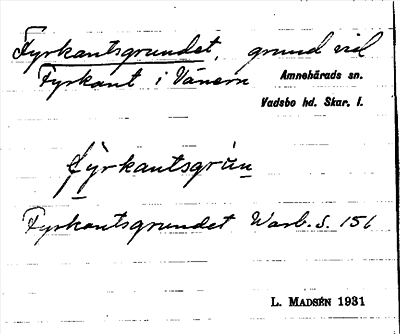 Fyrkantsgrundet, grund vid
Fyrkant i Vänern
Amnehärads sn.
Vadsbo hd. Skar. l.
fyrkantsgrun
Fyrkantsgrundet Warb. s. 151
L. MADSÉN 1931